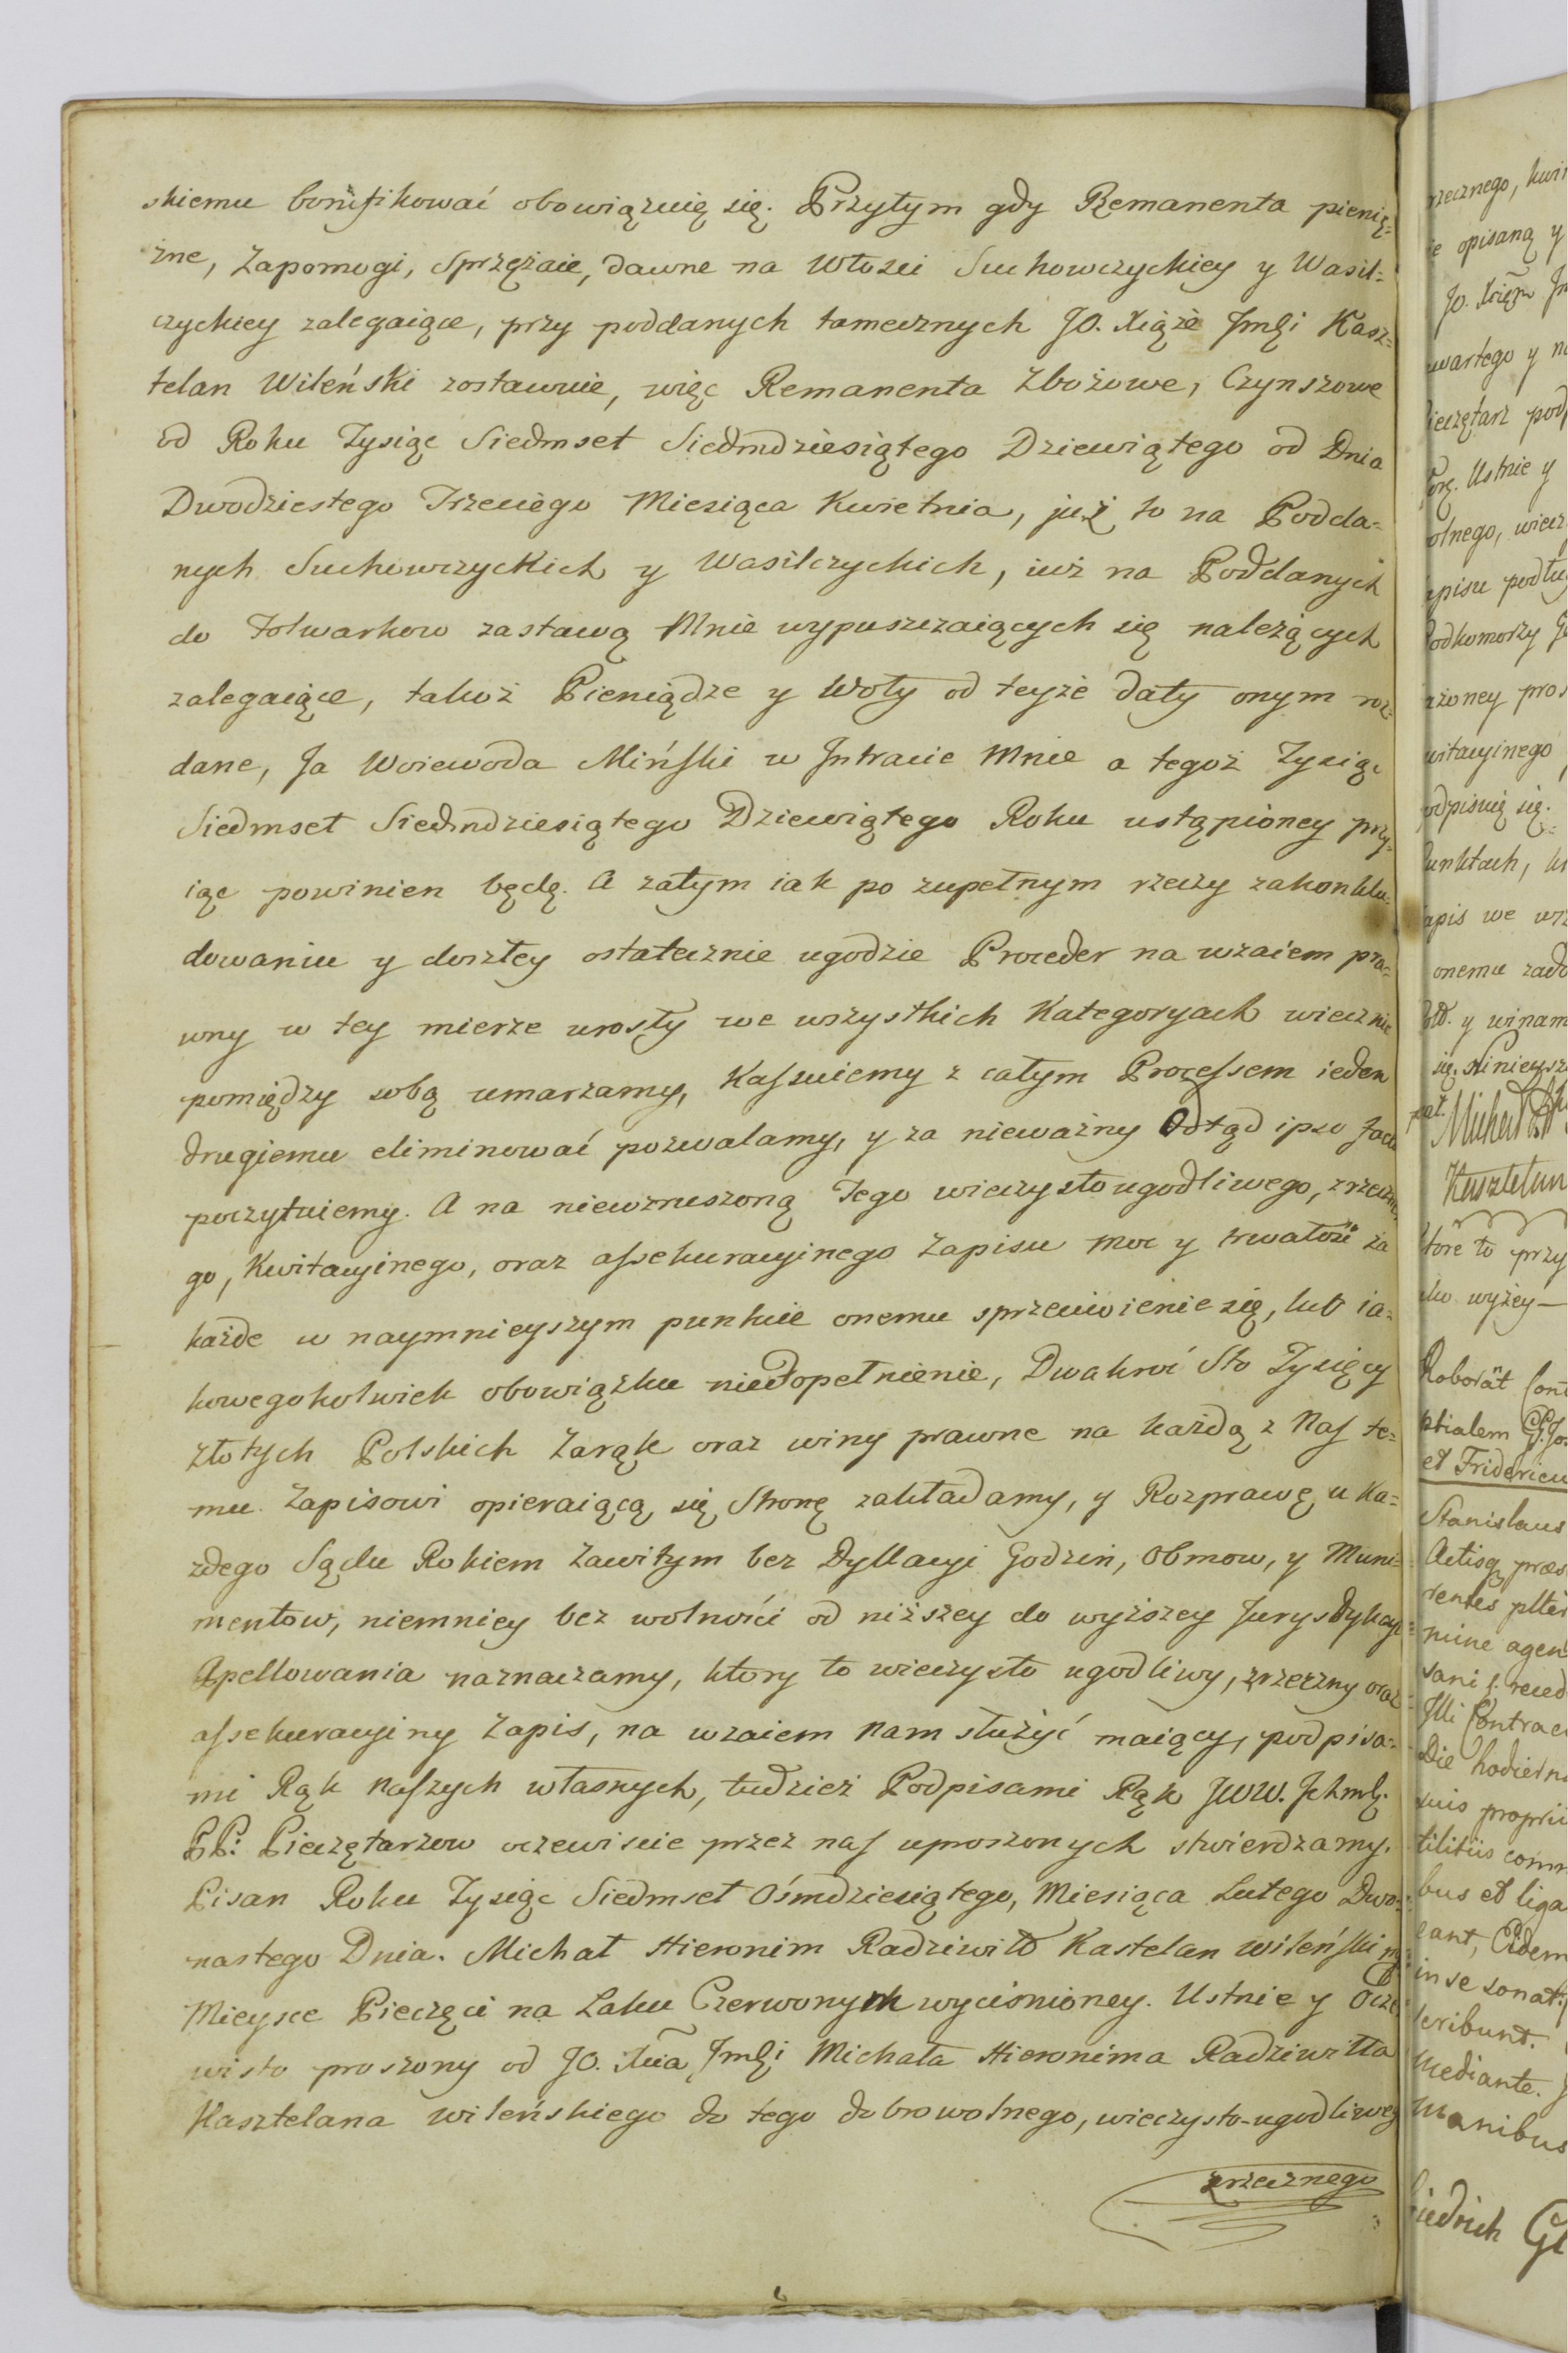 skiemu bonifikować obowiązuię się. Przytym gdy Remanenta pienię=
żne, Zapomogi, Sprzężaie, dawne na Włości Suchowczyckiey y Wasil=
czyckiey zalegaiące, przy poddanych tamecznych JO. Xiąże Jmći Kasz=
telan Wileński zostawuie, więc Remanenta Zbożowe, Czynszowe
od Roku Tysiąc Siedmset Siedmdziesiątego Dziewiątego od Dnia
Dwudziestego Trzeciego Miesiąca Kwietnia, już to na Podda=
nych Suchowczyckich y Wasilczyckich, iuż na Poddanych
do Folwarkow zastawą Mnie wypuszczaiących się należących
zalegaiące, takoż Pieniądze y Woły od teyże daty onym roz=
dane, Ja Woiewoda Miński w Intracie Mnie a tegoż Tysiąc
Siedmset Siedmdziesiątego Dziewiątego Roku ustąpioney przy=
iąc powinien będę. A zatym iak po zupełnym rzeczy zakonklu=
dowaniu y doszłey ostatecznie ugodzie Proceder na wzaiem pra=
wny w tey mierze urosły we wszystkich Kategoryach wiecznie
pomiędzy sobą umarzamy, Kassuiemy z całym Processem ieden
drugiemu eliminować pozwalamy, y za nieważny odtąd ipso facto
poczytuiemy. A na niewzruszoną Tego wieczysto ugodliwego, zrzeczne=
go, Kwitacyinego, oraz assekuracyinego Zapisu moc y trwałość za
każde w naymnieyszym punkcie onemu sprzeciwienie się, lub ia=
kowegokolwiek obowiązku niedopełnienie, Dwakroć Sto Tysięcy
złotych Polskich Zaręk oraz winy prawne na każdą z Nas te=
mu Zapisowi opieraiącą się Stronę zakładamy, y Rozprawę u Ka=
żdego Sądu Rokiem Zawitym bez Dyllacyi Godzin, Obmow, y Muni=
mentow, niemniey bez wolności od niższey do wyższey Jurysdykcyi
Apellowania naznaczamy, ktory to wieczysto ugodliwy, zrzeczny oraz
assekuracyiny Zapis, na wzaiem nam służyć maiący, podpisa=
mi Rąk naszych własnych, tudzież Podpisami Rąk JWW. Jchmć.
PP: Pieczętarzow oczewiscie przez nas uproszonych stwierdzamy.
Pisan Roku Tysiąc Siedmset Ośmdziesiątego, Miesiąca Lutego Dwu=
nastego Dnia. Michał Hieronim Radziwiłł Kastelan Wileński mp
Mieysce Pieczęci na Laku Czerwonym wyciśnioney. Ustnie y Ocze=
wisto proszony od JO. Xcia Jmći Michała Hieronima Radziwiłła
Kasztelana wileńskiego do tego dobrowolnego, wieczysto-ugodliweg
zrzecznego
rzecznego,
opisaną y
Jo.
y
Ustnie y
pros
odpisuię się.
we
onemu
y winam
Kasztelan
to przy
wyżey —
Roborat
et Fridericu
Stanislaus
rentes
agen
Die hodierna
suis proprii
bus et liga
in se
mediante.
manibus